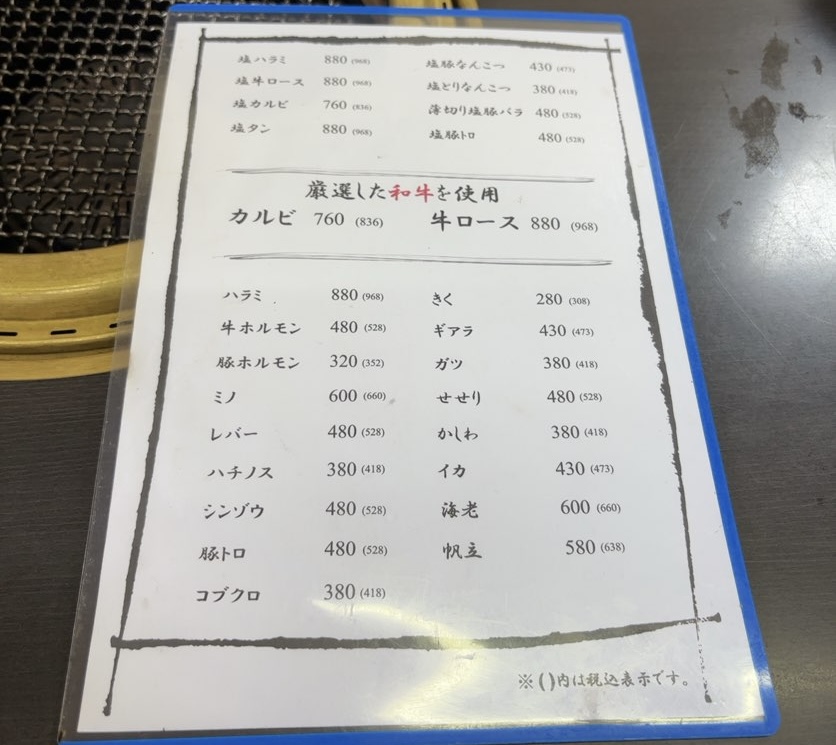 塩ハラミ 880 (968) 塩豚なんこつ 430 (473)
塩牛ロース 880 (968) 塩とりなんこつ 380 (418)
塩カルビ 760 (836) 薄切り塩豚バラ 480 (528)
塩タン 880 (968) 塩豚トロ 480 (528)
厳選した和牛を使用
カルビ 760 (836) 牛ロース 880 (968)
ハラミ 880 (968) きく 280 (308)
牛ホルモン 480 (528) ギアラ 430 (473)
豚ホルモン 320 (352) ガツ 380 (418)
ミノ 600 (660) せせり 480 (528)
レバー 480 (528) かしわ 380 (418)
ハチノス 380 (418) イカ 430 (473)
シンゾウ 480 (528) 海老 600 (660)
豚トロ 480 (528) 帆立 580 (638)
コブクロ 380 (418)
※()内は税込表示です。